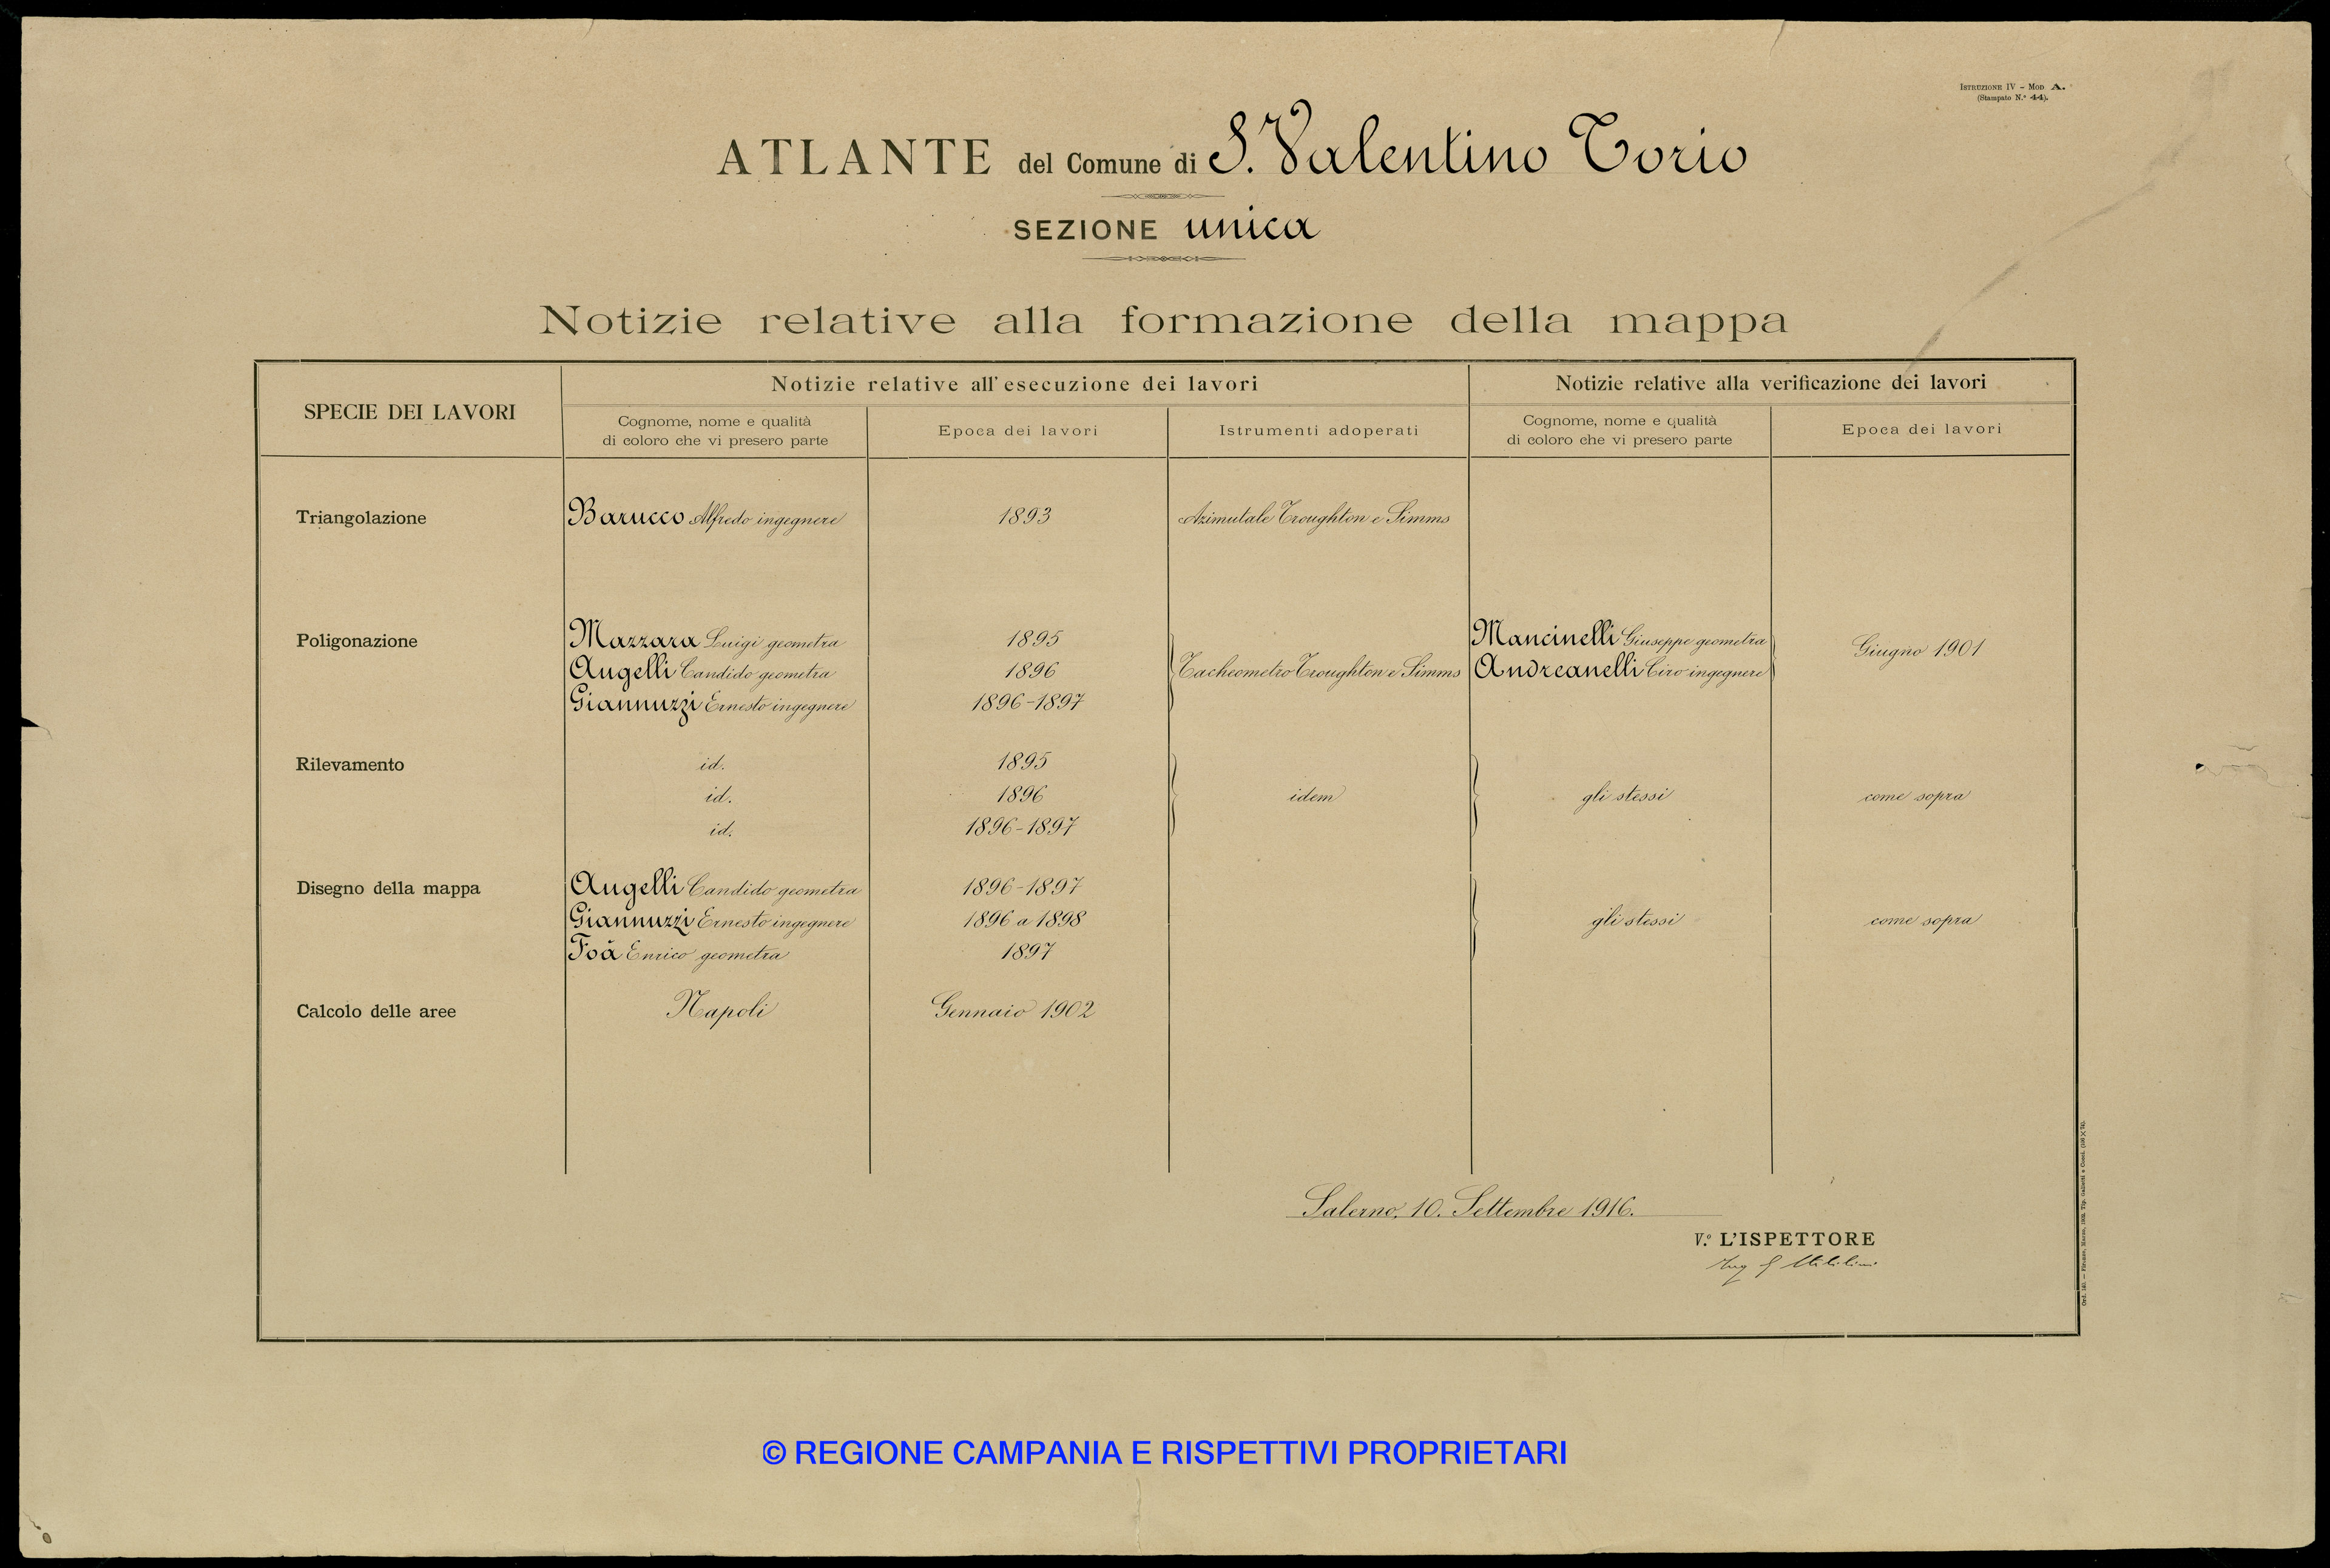 ISTRUZIONE IV - MOD A.
(Stampato N.º 44).
ATLANTE del Comune di S. Valentino Torio
SEZIONE unica
Notizie relative alla formazione della mappa
SPECIE DEI LAVORI
Notizie relative all'esecuzione dei lavori
Notizie relative alla verificazione dei lavori
Cognome, nome e qualità
di coloro che vi presero parte
Epoca dei lavori
Istrumenti adoperati
Cognome, nome e qualità
di coloro che vi presero parte
Epoca dei lavori
Triangolazione Barucco Alfredo ingegnere 1893 Azimutale Troughton e Simms
Poligonazione Mazzara Luigi geometra 1895 Mancinelli Giuseppe geometra Giugno 1901
Augelli Candido geometra 1896 Tacheometro Troughton e Simms Andreanelli Ciro ingegnere
Giannuzzi Ernesto ingegnere 1896-1897
Rilevamento id. 1895
id. 1896 idem gli stessi come sopra
id. 1896-1897
Disegno della mappa Augelli Candido geometra 1896-1897
Giannuzzi Ernesto ingegnere 1896 a 1898 gli stessi come sopra
Foà Enrico geometra 1897
Calcolo delle aree Napoli Gennaio 1902
Salerno, 10. Settembre 1916.
V.º L'ISPETTORE
Ing G
© REGIONE CAMPANIA E RISPETTIVI PROPRIETARI